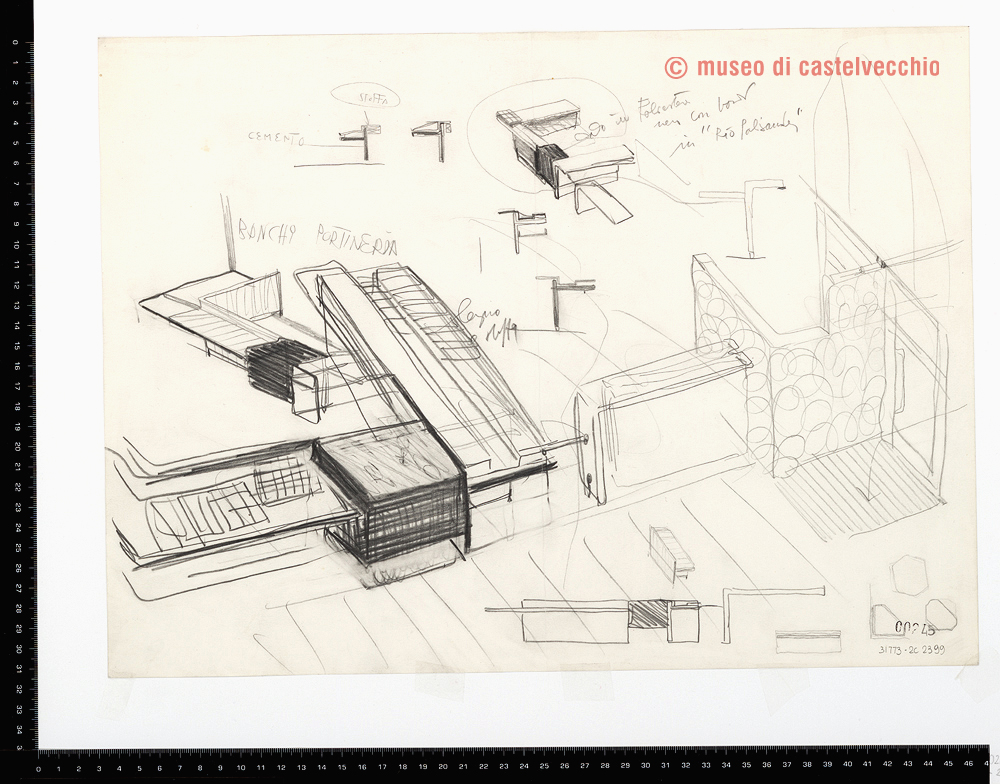 © museo di castelvecchio
STOFFA
CEMENTO
in Poliestere
nero con bordi
in "Rio Palisander"
BANCHI PORTINERIA
legno
e stoffa
00245
31773-2C 2399
0 1 2 3 4 5 6 7 8 9 10 11 12 13 14 15 16 17 18 19 20 21 22 23 24 25 26 27 28 29 30 31 32 33 34
0 1 2 3 4 5 6 7 8 9 10 11 12 13 14 15 16 17 18 19 20 21 22 23 24 25 26 27 28 29 30 31 32 33 34 35 36 37 38 39 40 41 42 43 44 45 46